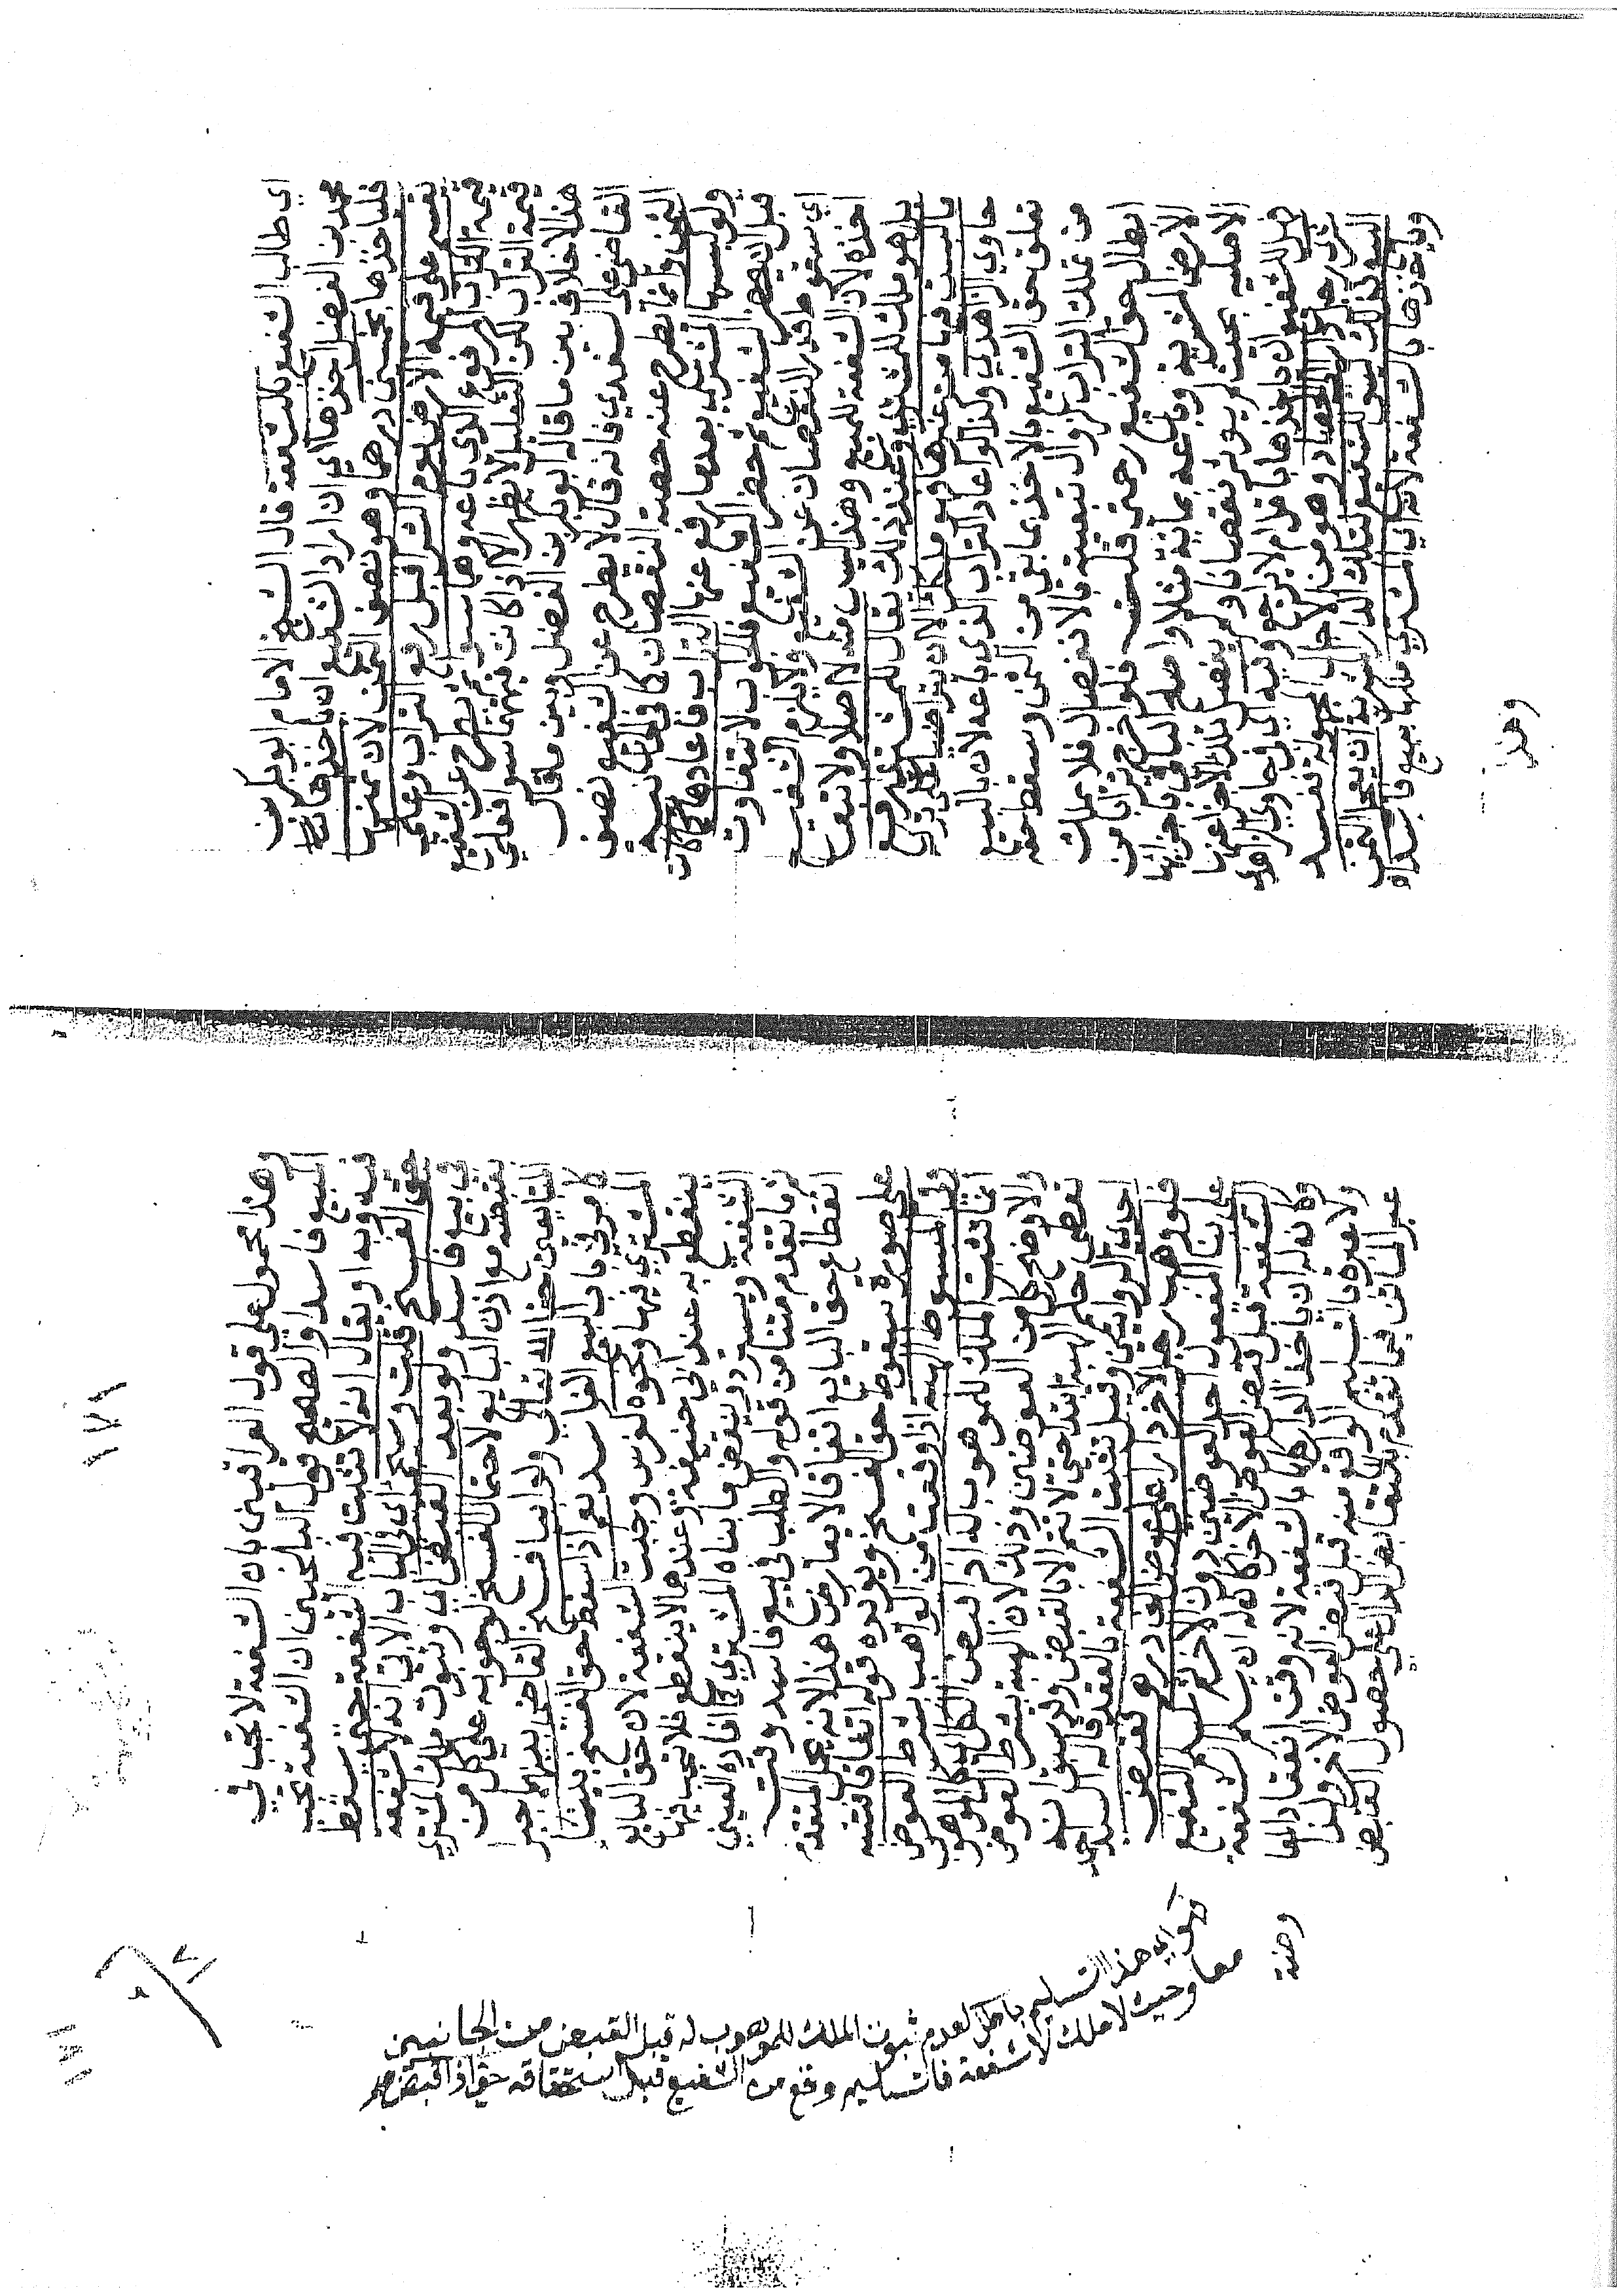 اي طالب الشفيع بالشفعة قال الشيخ الامام ابو بكر بن
محمد بن الفضل اخذها اي ان اراد الشفيع ان ياخذها
فلياخذها بخمسين درهما وهو نصف الثمن لان ثمنها
نفسه على قيمة الارض يوم الشرا قبل رفع التراب وعلى
قيمة التراب المرفوع الذي باعه وهما سوا ثم يطرح عن الشفيع
قيمة التراب لكن التعليل لا يظهر الا اذا كانت قيمتهما سوا فعلى
هذا لا خلاف بين ما قاله ابو بكر بن الفضل وبين ما قال
القاضي علي السغدي فانه قال لا يطرح عن الشفيع نصف
الثمن وانما يطرح عنه حصة النقصان
ولو كبسها المشتري بعدما رفع عنها التراب فاعادها كما كانت
قبل ان يحضر الشفيع ثم حضر الشفيع فالجواب لا يتفاوت
اي سقوط قدر النقصان عن الشفيع ولا يلزم الشفيع
اخذه لان الشفعة للمبيع وهذا ليس منه اصلا ولا تبعا
بل هو ملك للمشتري وعند ذلك يقال للمشتري ارفع
ما كبست فيها من غيرها فهو ملكك الا ان يتراضيا على شي
حاوي الزاهدي وكذا لو اعاد التراب الذي باعه لانه بالبيع
تعلق حق الشفيع بالاخذ بما بقي من الثمن وسقط حقه
من تملك التراب لزوال تبعيته بالانفصال فلا يملك
ابطال حق الشفيع حتى قلت فلو اخرج ترابا من
الارض المشرية وباعه بماية مثلا واصلح الباقي باجزائها
الاصلية بحيث لم يورث نقصانا ولم ينفصل تلك الاجزا عنها
هل للشفيع ان ياخذها بما قدم لا يراجع وفيه اي وفي حاوي الزاهدي
اشترى دارا الى الحصاد وهو من الاجل المجهولة نفسد
البيع بذلك ليس للشفيع لتلك الدار المشرية ان يعجل الثمن
وياخذها بالشفعة لانه اي المشتري ملكها ببيع فاسد اه
وهذا
١٧١
وهذا محمول على قول العراقيين بان الشفعة لا تجب في
البيع فاسدا والصحيح قول البلخيين ان الشفعة تجب
فيه وبه او يقال انه لا تثبت فيه الشفعة حتى يسقط
حق الفسخ قلت وسيجي اي في الباب الاتي انه لا شفعة
في بيع فاسد ولو بعد القبض اي وثبوت ملك المشتري
بقبضه مع اذن البايع لاحتمال الفسخ لوجوبه على كل من
المتبايعين حقا لله تعالى ولو ابيا فسخ القاضي بينهما جبرا
كما مر في باب البيع الفاسد نعم اذا سقط حق الفسخ ببنا
المشتري فيها ونحوه كغرس وجبت الشفعة لان حق البايع
ينقطع به عند ابي حنيفة وعندهما لا ينقطع فلا تجب فيها
الشفعة ويسترد بنقض ما بناه المشتري كما افاده العيني
ثم ما تقدم متنا من قوله والطلب في بيع فاسد وقت
انقطاع حق البايع اتفاقا لا يعارض هذا لانه يحمل المتقدم
على صورة سقوط حق الفسخ ويؤيده قوله اتفاقا فتنبه
وفي المبسوط الهبة اذا وقعت من الواهب بشرط العوض
انما تثبت الملك للموهوب له اذا قبض الكل اي الموهوب
والاوضح كل من العوضين وذلك لان الهبة بشرط العوض
تعطى حكم الهبة ابتدا حتى لا تتم الا بالقبض وقد سبق انه
احدى الروايتين وقيل تثبت الشفعة بالعقد قاله السيد حموي
فلو وهب رجل لاخر دارا على عوض الف درهم فقبض
على بنا المفعول احد العوضين دون الاخر ثم سلم الشفيع
الشفعة قبل قبض العوض الاخر كان له ان يسلم الشفعة
وكان له ان ياخذ الدار كلها بالشفعة لانه وقت انعقادها
ولا عبرة بالتسليم الواقع منه قبل قبض العوض الاخر ولذا
عبر الماتن فيما تقدم
وهبة
فهو اي هذا التسليم باطل لعدم ثبوت الملك للموهوب له قبل القبض من الجانبين
معا وحيث لا ملك لا شفعة فالتسليم وقع من الشفيع قبل استحقاقه حتى اذا قبض
١٧١